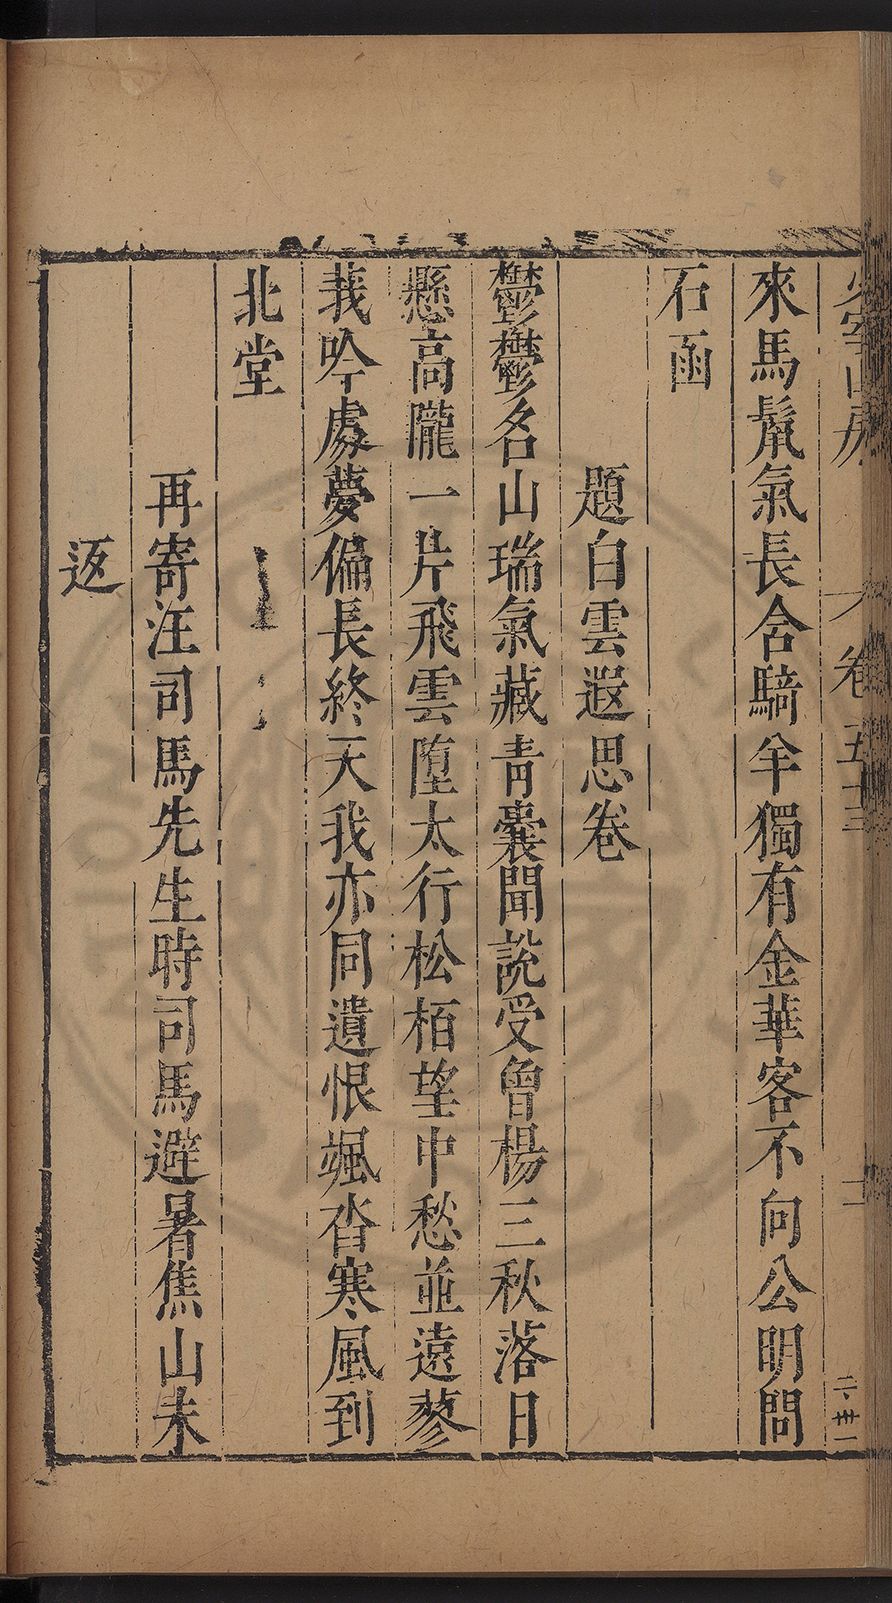 少室山房 卷五十三 二 二·卅一
來馬鬛氣長含騎牟獨有金華客不向公明問
石函
題白雲遐思卷
鬱鬱名山瑞氣藏青囊聞說受曾楊三秋落日
懸高隴一片飛雲墮太行松栢望中愁並遠蓼
莪吟處夢偏長終天我亦同遺恨颯沓寒風到
北堂
再寄汪司馬先生時司馬避暑焦山未
返